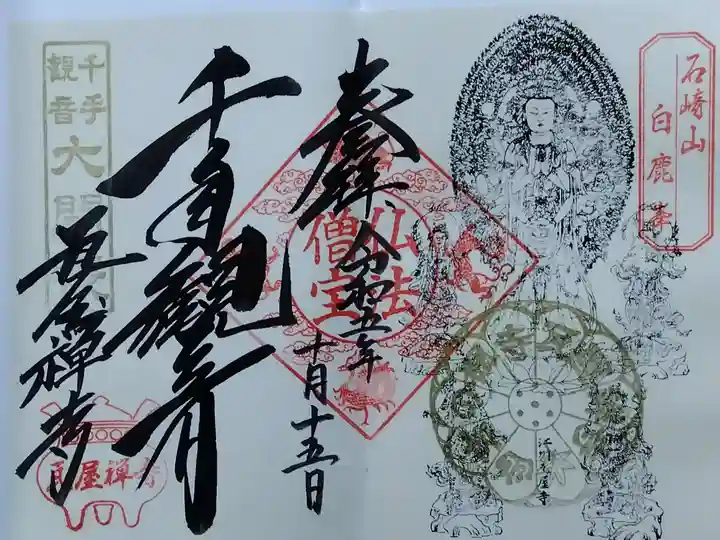 石崎山
白鹿峯
奉拝
令和五年
十月十五日
仏法
僧宝
千手観音
瓦屋禅寺
千手
観音
大開
瓦屋禅寺